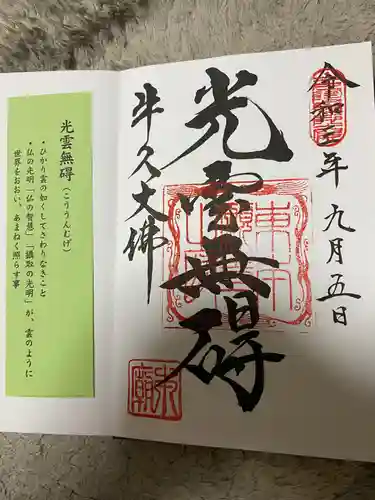 令和三年 九月五日
光雲無碍
牛久大佛
光雲無碍(こううんむげ)
・ひかり雲の如くしてさわりなきこと
・仏の光明「仏の智慧」「攝取の光明」が、雲のように
世界をおおい、あまねく照らす事